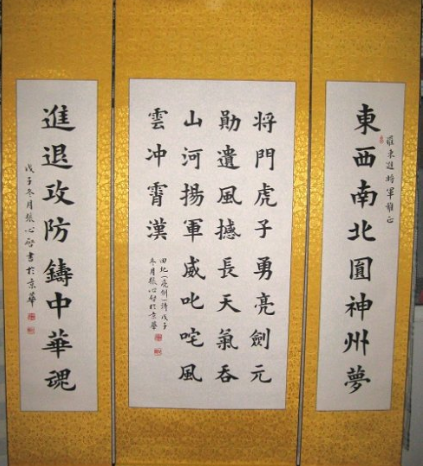 羅東進將軍雅正
東西南北圓神州夢
将門虎子勇亮劍元
勛遺風撼長天氣吞
山河揚軍威叱咤風
雲冲霄漢
詩戊子
冬月張心智於京華
進退攻防鑄中華魂
戊子冬月張心智書於京華